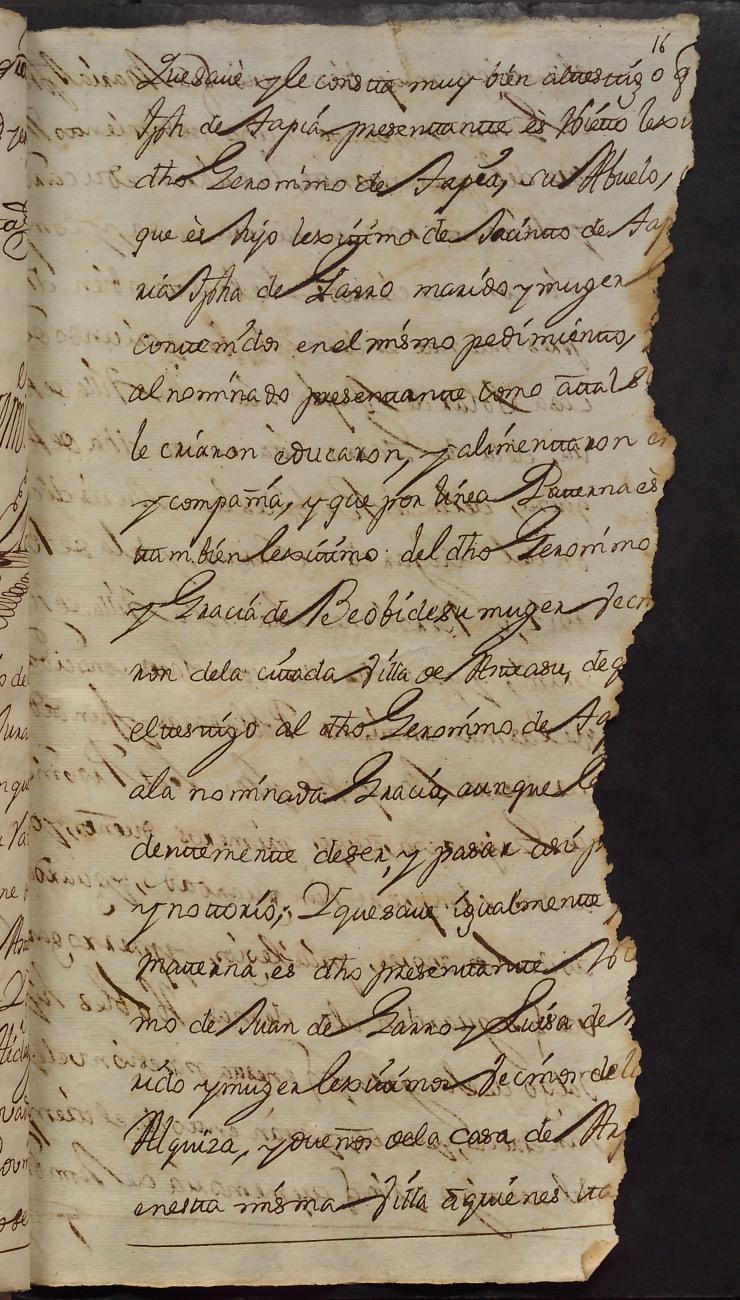 16
Que save y le consta muy bien al testigo q
Jph de Tapia presentante es Nieto lexi
dho Geronimo de Tapia, su Abuelo,
que es hijo lexitimo de Jacinto de Ta
ria Jpha de Garro marido y muger
contenidos en el mismo pedimiento,
al nominado presentante como a tal
le criaron educaron, y alimentaron en
y compañia, y que por linea Paterna es
tambien lexitimo del dho Geronimo
y Gracia de Beobide su muger vecin
ron dela citada Villa de Anteasu, de q
el testigo al dho Geronimo de Ta
ala nominada Gracia, aunque
dentemente de ser, y pasar asi p
y nottorio; Y que save igualmente,
materna es dho presentante
mo de Juan de Garro y Luisa de
rido y muger lexitimos vecinos de
Alquiza, y dueños dela casa de Ar
en esta misma Villa a quienes tta